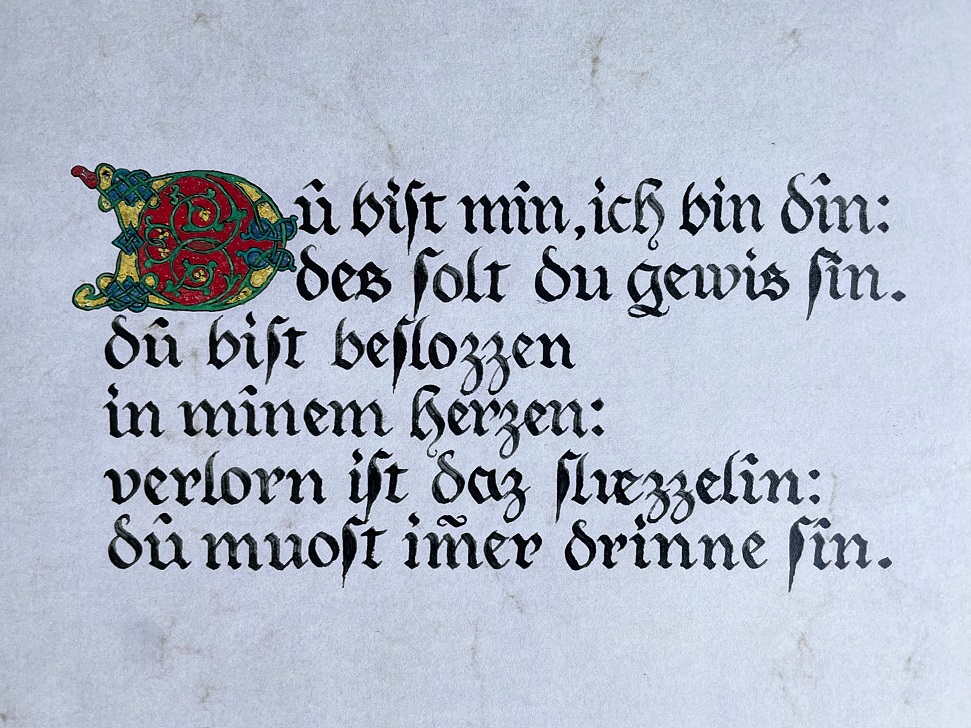 Dû biſt mîn, ich bin dîn:
des ſolt du gewis ſîn.
dû biſt beſlozzen
in mînem herzen:
verlorn iſt daz ſlüzzelîn:
dû muoſt im̃er drinne ſîn.